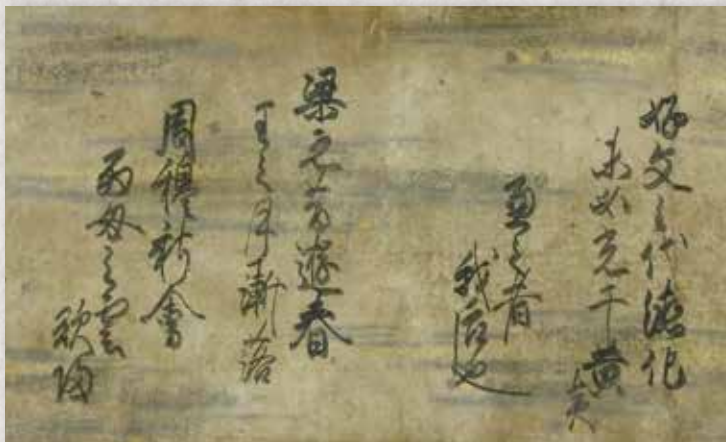 好文之代德化
未必光于黄炎
兼之者
我后也
梁元昔遊春
王之月漸落
周穆新會
西母之雲
欲歸